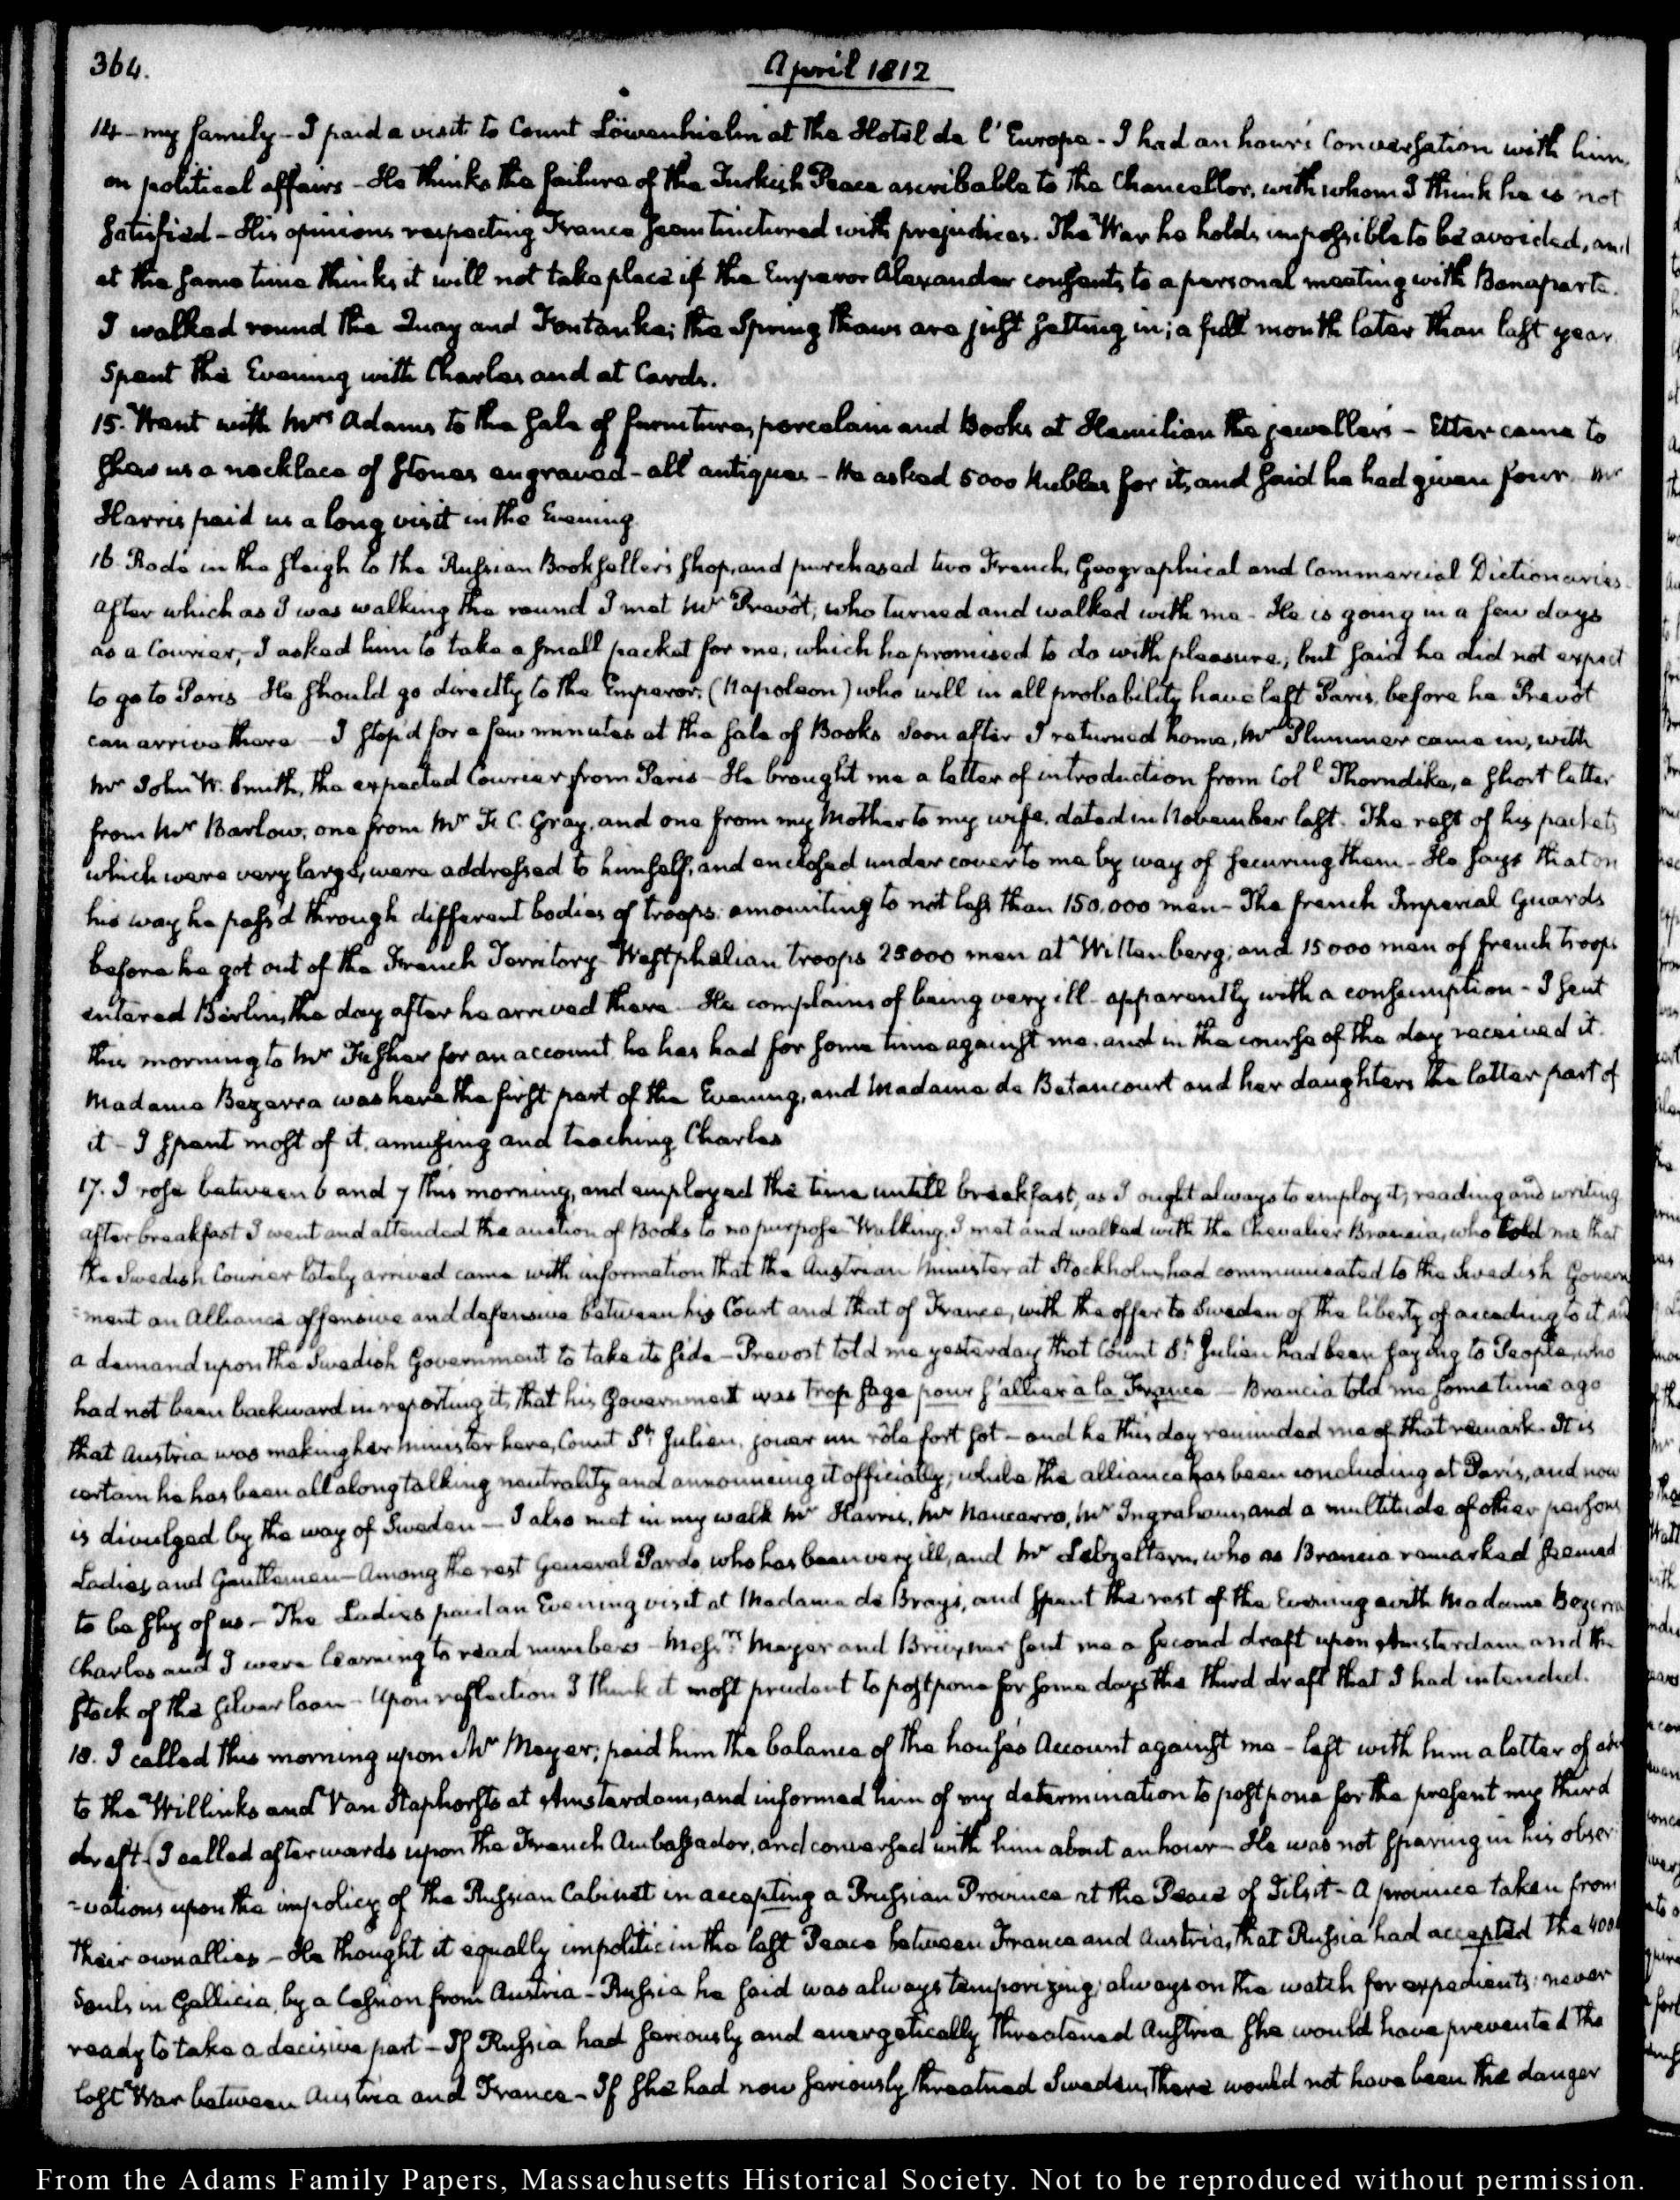 364.
April 1812
14 - my family - I paid a visit to Count Löwenhielm at the Hotel de l'Europe - I had an hour's Conversation with him,
on political affairs - He thinks the failure of the Turkish Peace ascribable to the Chancellor, with whom I think he is not
satisfied - His opinions respecting France seem tinctured with prejudices. The War he holds impossible to be avoided, and
at the same time thinks it will not take place if the Emperor Alexander consents to a personal meeting with Bonaparte.
I walked round the Quay and Fontanka; the Spring thaws are just setting in; a full month later than last year
Spent the Evening with Charles and at Cards.
15. Went with Mrs Adams to the sale of furniture, porcelain and Books at Hemilian the jeweller's - Etter came to
shew us a necklace of stones engraved - all antiques - He asked 5000 Rubles for it, and said he had given four. Mr
Harris paid us a long visit in the Evening
16. Rode in the sleigh to the Russian Bookseller's shop, and purchased two French, Geographical and Commercial Dictionaries.
After which as I was walking the round I met Mr Prevôt, who turned and walked with me - He is going in a few days
as a Courier; I asked him to take a small packet for me; which he promised to do with pleasure; but said he did not expect
to go to Paris - He should go directly to the Emperor, (Napoleon) who will in all probability have left Paris, before he Prevôt
can arrive there - I stop'd for a few minutes at the sale of Books. Soon after I returned home, Mr Plummer came in, with
Mr John W. Smith, the expected Courier from Paris - He brought me a letter of introduction from Coll Thorndike, a short letter
from Mr Barlow, one from Mr F. C. Gray, and one from my Mother to my wife, dated in November last. The rest of his packets
which were very large, were addressed to himself, and enclosed under cover to me by way of securing them - He says that on
his way he pass'd through different bodies of troops, amounting to not less than 150,000 men - The french Imperial Guards
before he got out of the French Territory - Westphalian troops 25000 men at Wittenberg; and 15000 men of french troops
entered Berlin, the day after he arrived there - He complains of being very ill - apparently with a consumption - I sent
this morning to Mr Fisher for an account he has had for some time against me, and in the course of the day received it.
Madame Bezerra was here the first part of the Evening, and Madame de Betancourt and her daughters the latter part of
it - I spent most of it, amusing and teaching Charles
17. I rose between 6 and 7 this morning, and employed the time untill breakfast, as I ought always to employ it, reading and writing
after breakfast I went and attended the auction of Books to no purpose. Walking, I met and walked with the Chevalier Brancia, who told me that
the Swedish Courier lately arrived came with information that the Austrian Minister at Stockholm, had communicated to the Swedish Govern
=ment an Alliance offensive and defensive between his Court and that of France, with the offer to Sweden of the liberty of acceding to it and
a demand upon the Swedish Government to take its side - Prevost told me yesterday that Count St Julien had been saying to People, who
had not been backward in reporting it, that his Government was trop sage pour s'allier à la France - Brancia told me some time ago
that Austria was making her Minister here, Count St Julien, jouer un rôle fort sot - and he this day reminded me of that remark. It is
certain he has been all along talking neutrality and announcing it officially; while the alliance has been concluding at Paris, and now
is divulged by the way of Sweden - I also met in my walk Mr Harris, Mr Navarro, Mr Ingraham, and a multitude of other persons
Ladies and Gentlemen - Among the rest General Pardo, who has been very ill, and Mr Lebzeltern, who as Brancia remarked seemed
to be shy of us. - The Ladies paid an Evening visit at Madame de Bray's, and spent the rest of the Evening with Madame Bezerra
Charles and I were learning to read numbers - Messrs Meyer and Brüxner sent me a second draft upon Amsterdam, and the
stock of the silver loan - Upon reflection I think it most prudent to postpone for some days the third draft that I had intended.
18. I called this morning upon Mr Meyer; paid him the balance of the house's Account against me - left with him a letter of
to the Willinks and Van Staphorsts at Amsterdam, and informed him of my determination to postpone for the present my third
draft. (I called afterwards upon the French Ambassador, and conversed with him about an hour - He was not sparing in his obser
=vations upon the impolicy of the Russian Cabinet in accepting a Prussian Province at the Peace of Tilsit - A province taken from
their own allies - He thought it equally impolitic in the last Peace between France and Austria, that Russia had accepted the
Souls in Gallicia, by a Cession from Austria - Russia he said was always temporizing; always on the watch for expedients; never
ready to take a decisive part - If Russia had seriously and energetically threatened Austria she would have prevented the
last War between Austria and France - If she had now seriously threatned Sweden, there would not have been the danger
From the Adams Family Papers, Massachusetts Historical Society. Not to be reproduced without permission.